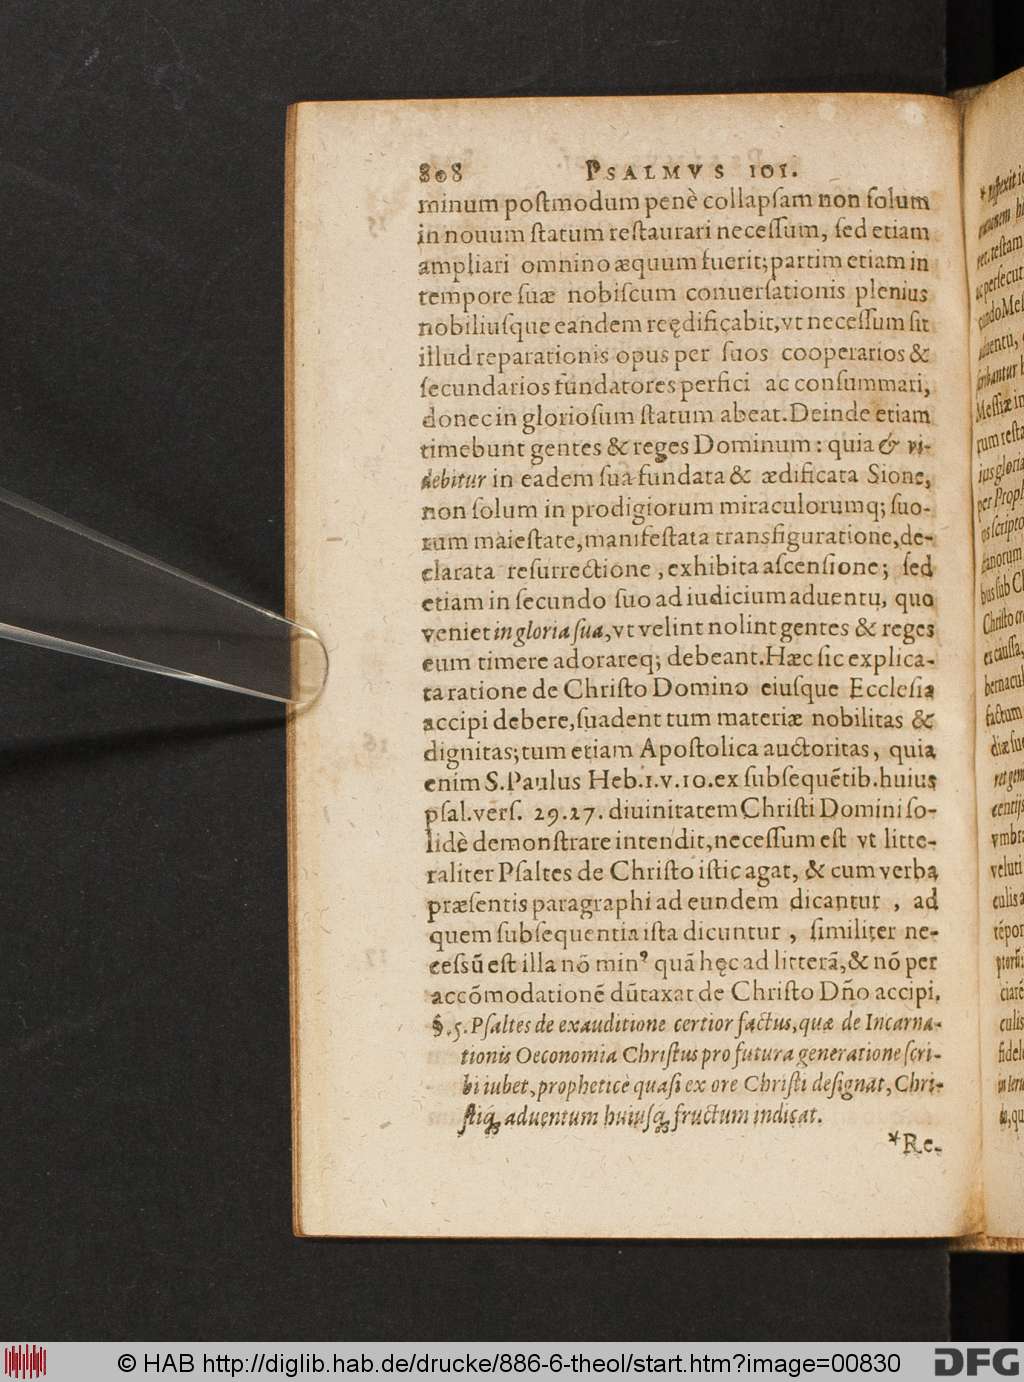 808 PSALMVS 101.
minum postmodum penè collapsam non solum
in nouum statum restaurari necessum, sed etiam
ampliari omnino æquum fuerit; partim etiam in
tempore suæ nobiscum conuersationis plenius
nobiliusque eandem reędificabit, vt necessum sit
illud reparationis opus per suos cooperarios &
secundarios fundatores perfici ac consummari,
donec in gloriosum statum abeat. Deinde etiam
timebunt gentes & reges Dominum: quia & vi-
debitur in eadem sua fundata & ædificata Sione,
non solum in prodigiorum miraculorumq; suo-
rum maiestate, manifestata transfiguratione, de-
clarata resurrectione, exhibita ascensione; sed
etiam in secundo suo ad iudicium aduentu, quo
veniet in gloria sua, vt velint nolint gentes & reges
eum timere adorareq; debeant. Hæc sic explica-
ta ratione de Christo Domino eiusque Ecclesia
accipi debere, suadent tum materiæ nobilitas &
dignitas; tum etiam Apostolica auctoritas, quia
enim S. Paulus Heb. 1. v. 10. ex subsequētib. huius
psal. vers. 29. 27. diuinitatem Christi Domini so-
lidè demonstrare intendit, necessum est vt litte-
raliter Psaltes de Christo istic agat, & cum verba
præsentis paragraphi ad eundem dicantur, ad
quem subsequentia ista dicuntur, similiter ne-
cessū est illa nō minꝰ quā hęc ad litterā, & nō per
accōmodationē dūtaxat de Christo Dño accipi.
§. 5. Psaltes de exauditione certior factus, quæ de Incarna-
tionis Oeconomia Christus pro futura generatione scri-
bi iubet, propheticè quasi ex ore Christi designat, Chri-
stiq; aduentum huiusq; fructum indicat.
*Re-
© HAB http://diglib.hab.de/drucke/886-6-theol/start.htm?image=00830
DFG